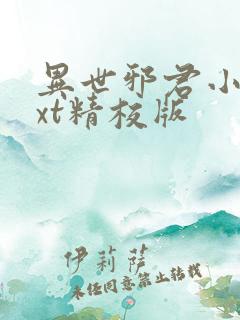 異世邪君小
xt精校版
伊莉薩
未经同意禁止转载